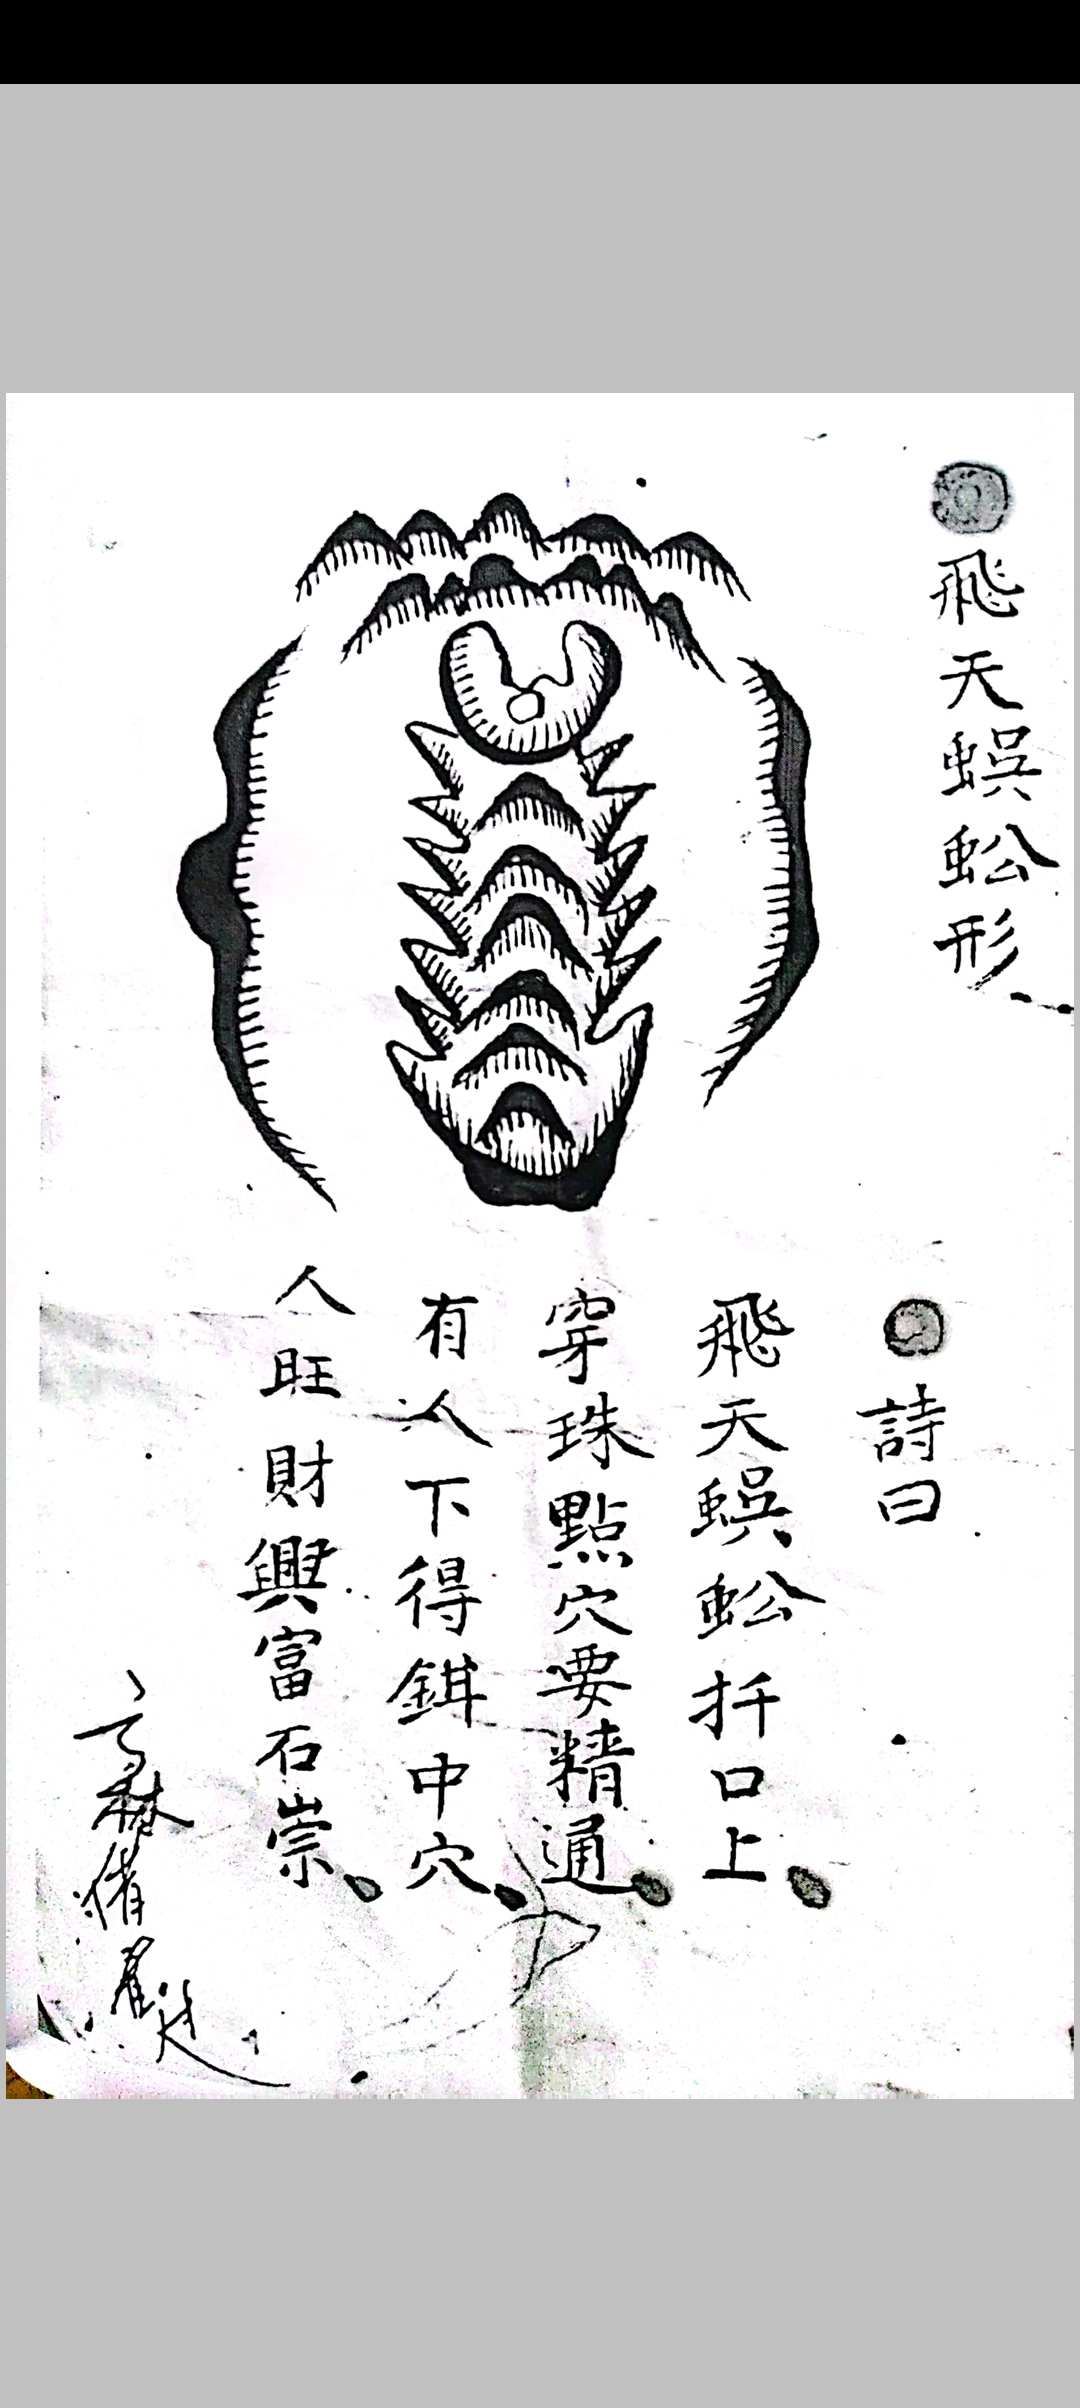 飛天蜈蚣形
詩曰
飛天蜈蚣扦口上
穿珠點穴要精通
有人下得鉺中穴
人旺財興富石崇